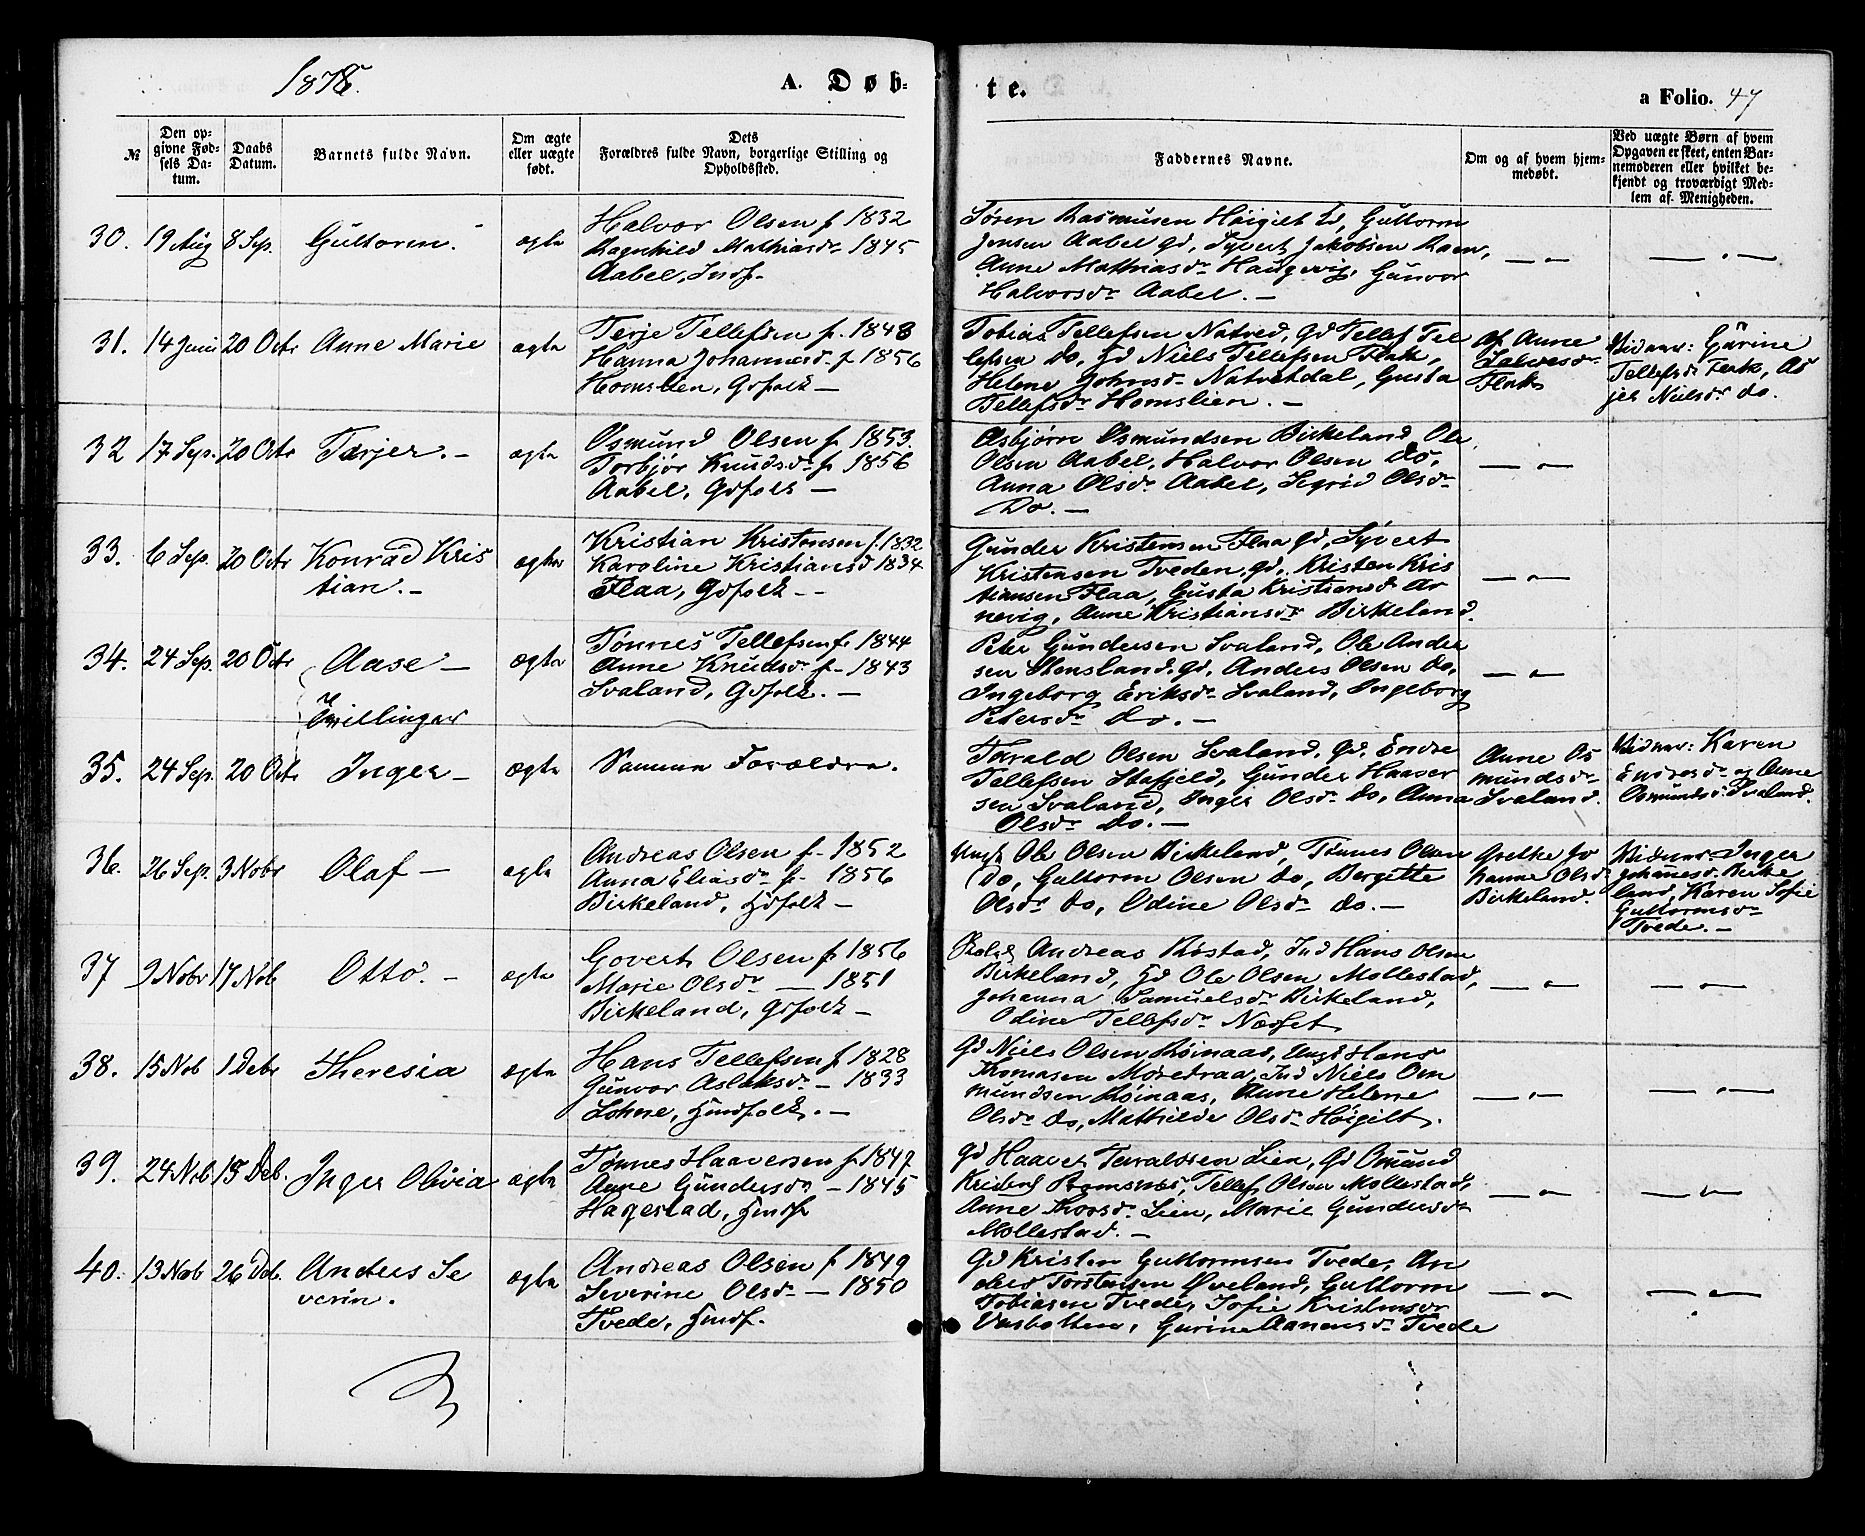 1878.
A. Døb-
te.
a Folio. 47
№
Den op-
givne Fød-
sels Da-
tum.
Daabs
Datum.
Barnets fulde Navn.
Om ægte
eller uægte
født.
Dets
Forældres fulde Navn, borgerlige Stilling og
Opholdssted.
Faddernes Navne.
Om og af hvem hjem-
medøbt.
Ved uægte Børn af hvem
Opgaven er skeet, enten Bar-
nemoderen eller hvilket be-
kjendt og troværdigt Med-
lem af Menigheden.
30. 19 Aug 8 Sep. Guttorm. ægte
Halvor Olsen f. 1832
Ragnhild Mathiasdr 1845
Aabel, Indf.
Søren Rasmusen Høigilt, Guttorm
Jensen Aabel gd, Syvert Jakobsen Raen,
Anne Mathiasdr Haugevig, Gunvor
Halvorsdr Aabel. —
— " —
— " —
31. 14 Juni 20 Octr Anne Marie ægte
Terje Tellefsen f. 1848
Hanna Johannesd. f 1856
Homslien, Gdfolk —
Tobias Tellefsen Natved, gd Tellef Tel
lefsen do, gd Niels Tellefsen Flak,
Helene Johnsdr Natvetdal, Gusta
Tellefsdr Homslien. —
Af Anne
Salvesdr
Flak
Vidner: Gurine
Tellefsd. Flak, As
jer Nielsdr do.
32 17 Sep. 20 Octr Tarjer. — ægte
Osmund Olsen f. 1853.
Torbjør Knudsdr f. 1856
Aabel, Gdfolk —
Asbjørn Osmundsen Birkeland, Ole
Olsen Aabel, Halvor Olsen do,
Anna Olsdr Aabel, Segrid Olsdr
Do. —
— " —
33. 6 Sep. 20 Octr Konrad Kris
tian. — ægte
Kristian Kristensen f. 1832
Karoline Kristiansd 1834
Flaa, Gdfolk —
Gunder Kristensen Flaa gd, Syvert
Kristensen Tveden, gd, Kristen Kris
tiansen Flaa, Gusta Kristiansd Ar
nevig, Anne Kristiansdr Birkeland.
— " —
34. 24 Sep. 20 Octr Aase — ægte
Tvillinger
Tønnes Tellefsen f. 1844
Anne Knudsdr f. 1843
Svaland, Gdfolk. —
Peter Gundersen Svaland, Ole Ander
sen Stensland, gd, Anders Olsen do,
Ingeborg Eriksdr Svaland, Ingeborg
Petersdr do. —
— " —
35. 24 Sep. 20 Octr Inger — ægte
Samme Forældre.
Tarald Olsen Svaland, Gd, Endre
Tellefsen Stafjeld, Gunder Haaver
sen Svaland, Inger Olsdr do, Anna
Olsdr do. —
Anne Os
mundsdr
Svaland.
Vidner: Karen
Endresdr og Anne
Osmundsd. Svaland.
36. 26 Sep. 3 Nobr Olaf — ægte
Andreas Olsen f. 1852
Anna Eliasdr f. 1856
Birkeland, Hdfolk —
Ungk Ole Olsen Birkeland, Tønnes Olsen
do, Guttorm Olsen do, Bergitte
Olsdr do, Odine Olsdr do. —
Grethe Jo
hanne Olsd
Birkeland.
Vidner: Inger
Johannesd. Birke
land, Karen Sofie
Guttormsdr
Tvede. —
37 9 Nobr 17 Nob Otto. — ægte
Govert Olsen f. 1856
Marie Olsdr — 1851
Birkeland, Gdfolk —
Andreas Røstad, Ind Hans Olsen
Birkeland, Gd Ole Olsen Mollestad,
Johanna Samuelsdr Birkeland,
Odine Tellefsdr Næsset
— " —
— " —
38. 15 Nob 1 Debr Theresia ægte
Hans Tellefsen f. 1828
Gunvor Aslaksdr — 1833
Lohne, Hdfolk. —
Gd Niels Olsen Røinaas, Ungk Hans
Thomasen Møretraa, Ind Niels Om
mundsen Røinaas, Anne Helene
Olsdr do, Mathilde Olsdr Høigilt.
— " —
— " —
39. 24 Nob 15 Deb. Inger Olivia ægte
Tønnes Haaversen f. 1847
Anne Gundersdr — 1845
Hagestad,
Gd Haaver Taraldsen Lien, Gd Omund
Tellef Olsen Mollestad,
Anne Lien, Marie Gundersdr
Mollestad. —
— " —
— " —
40. 13 Nob 26 Deb. Anders Se
verin. ægte
Andreas Olsen f 1849
Severine Olsdr — 1850
Tvede,
Gd Kristen Guttormsen Tvede, An
dres Torstensen Øveland, Guttorm
Tobiasen Tvede, Sofie Kristensdr
Vasbotten, Gurine Aanensdr Tvede
— " —
— " —